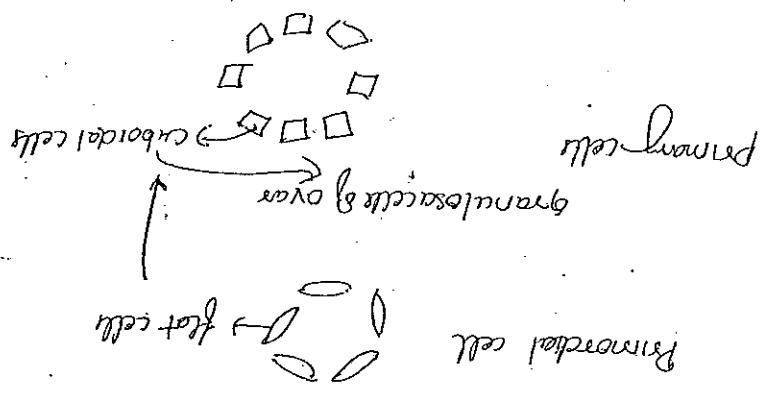 Primordial cell → flat cells
granulosa cells of ovar
primary cells → cuboidal cells